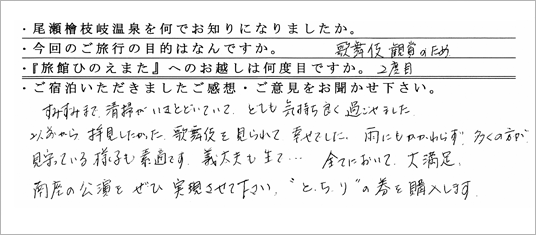 ・尾瀬檜枝岐温泉を何でお知りになりましたか。
・今回のご旅行の目的はなんですか。 歌舞伎観賞のため
・『旅館ひのえまた』へのお越しは何度目ですか。 2度目
・ご宿泊いただきましたご感想・ご意見をお聞かせ下さい。
すみずみまで、清掃がいきとどいていて、とても気持ち良く過ごせました。
以前から拝見したかった歌舞伎を見られて幸せでした。雨にもかかわらず、多くの方が
見守っている様子も素適です。義太夫も生で… 全てにおいて、大満足。
南座の公演をぜひ実現させて下さい。"とちり"の券を購入します。